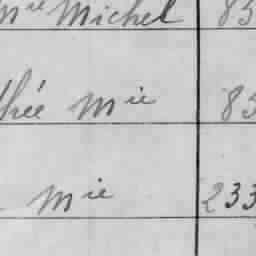 Mie Michel 85
thée Mie 85
Mie 233